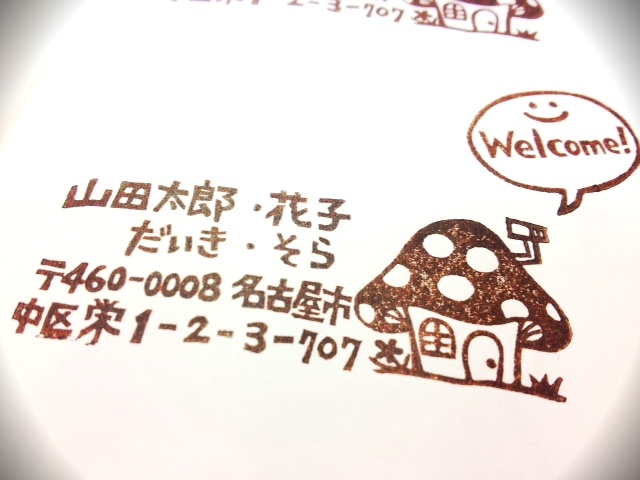 1-2-3-707
Welcome!
山田太郎・花子
だいき・そら
〒460-0008 名古屋市
中区栄1-2-3-707